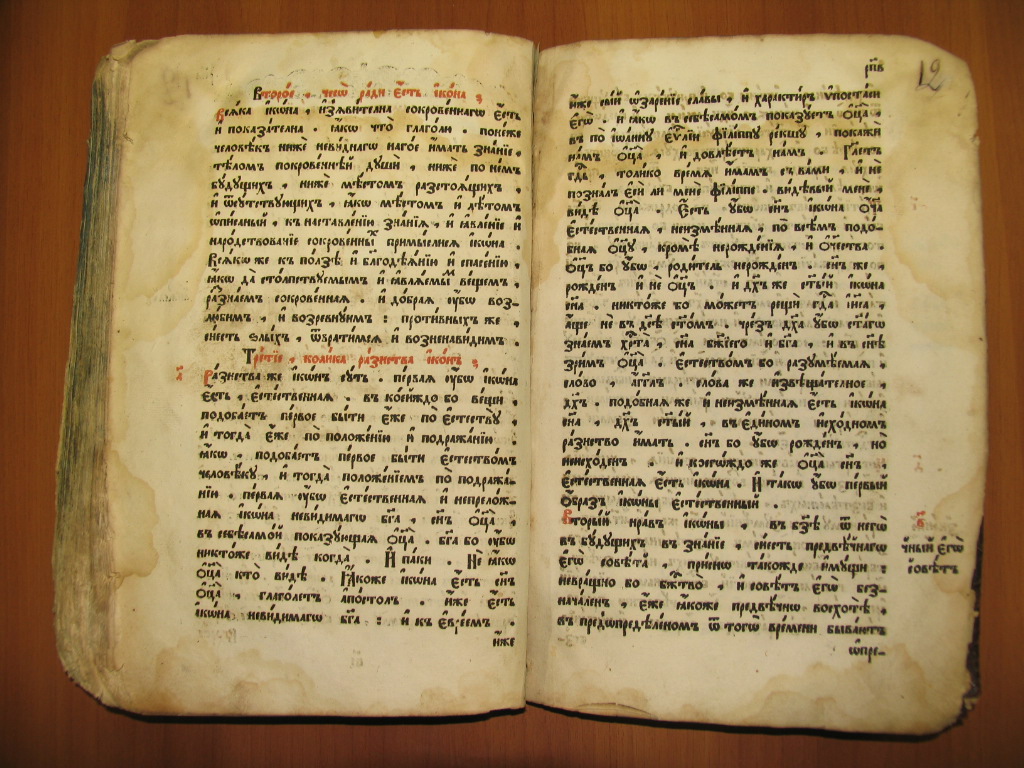 Второ́е , чесѡ̀ ра́ди є҆́сть і҆ко́на ;
Всѧ́ка і҆ко́на , и҆з̾ѧви́телна сокрове́ннагѡ є҆́сть
и҆ показа́телна . ꙗ҆́кѡ что̀ глаго́лю . поне́же
человѣ́къ нижѐ неви́днагѡ наго́е и҆́мать зна́нїе ,
тѣ́ломъ покрове́ннѣй дꙋшѝ , нижѐ по не́мъ
бꙋ́дꙋщихъ , нижѐ мѣ́стомъ разстоѧ́щихъ ,
и҆ ѿсꙋ́тствꙋющихъ , ꙗ҆́кѡ мѣ́стомъ и҆ лѣ́томъ
ѡ҆пи́саный , къ наставле́нїю зна́нїѧ , и҆ ꙗ҆вле́нїе и҆
наро́дствованїе сокрове́нны́ѧ примы́слисѧ і҆ко́на .
Всѧ́кѡ же къ по́лзѣ и҆ бл҃годѣѧ́нїю и҆ спасе́нїю ,
ꙗ҆́кѡ да̀ столпствꙋ́емымъ и҆ ꙗ҆влѧ́емымъ ве́щемъ ,
разꙋ́мѣемъ сокрове́ннаѧ . и҆ до́браѧ ᲂу҆́бѡ воз-
лю́бимъ , и҆ возревнꙋ́имъ : проти́вныхъ же ,
си́есть ѕлы́хъ , ѿврати́мсѧ и҆ возненави́димъ .
Тре́тїе , коли́ка ра́знства і҆ко́нъ ;
а҃
Ра́знства же і҆ко́нъ сꙋ́ть . пе́рваѧ ᲂу҆́бѡ і҆ко́на
є҆́сть , є҆сте́ственнаѧ . въ кое́йждо бо ве́щи ,
подоба́етъ пе́рвое бы́ти є҆́же по є҆стествꙋ̀ ,
и҆ тогда̀ є҆́же по положе́нїю и҆ подража́нїю .
ꙗ҆́кѡ , подоба́етъ пе́рвое бы́ти є҆стество́мъ
человѣ́кꙋ , и҆ тогда̀ положе́нїемъ по подража́-
нїю . пе́рваѧ ᲂу҆́бѡ є҆сте́ственнаѧ и҆ непрело́ж-
наѧ і҆ко́на неви́димагѡ бг҃а , сн҃ъ ѻ҆ц҃а̀ ,
въ себѣ̀само́й показꙋ́ющаѧ ѻ҆ц҃а̀ . бг҃а бо ᲂу҆́бѡ
никто́же ви́дѣ когда̀ . И҆ па́ки . Не ꙗ҆́кѡ
ѻ҆ц҃а̀ кто̀ ви́дѣ . Ꙗ҆́коже і҆ко́на є҆́сть сн҃ъ
ѻ҆ц҃а̀ , глаго́летъ а҆по́столъ . и҆́же є҆́сть
і҆ко́на неви́димагѡ бг҃а : и҆ къ є҆вре́емъ .
и҆́же
рп҃в
12
и҆́же сы́й ѡ҆заре́нїе сла́вы , и҆ хара́ктиръ ѵ҆поста́си
є҆гѡ̀ . и҆ ꙗ҆́кѡ въ себѣ̀само́мъ показꙋ́етъ ѻ҆ц҃а̀ ,
въ по і҆ѡа́ннꙋ є҆ѵ҃лїи фїлі́ппꙋ ре́кшꙋ , покажѝ
на́мъ ѻ҆ц҃а̀ , и҆ довлѣ́етъ на́мъ . Гл҃етъ
гд҃ь , то́лико вре́мѧ и҆́мамъ съ ва́ми , и҆ не
позна́лъ є҆сѝ ли менѐ фїлі́ппе . ви́дѣвый менѐ ,
ви́дѣ ѻ҆ц҃а̀ . Є҆́сть ᲂу҆́бѡ сн҃ъ і҆ко́на ѻ҆ч҃а
є҆сте́ственнаѧ , неизмѣ́ннаѧ , по всѣ́мъ подо́б-
бнаѧ ѻ҆ц҃ꙋ̀ , кромѣ̀ нерожде́нїѧ , и҆ ѻ҆́чества .
ѻ҆ц҃ъ бо ᲂу҆́бѡ , роди́тель нерожде́нъ . сн҃ъ же ,
рожде́нъ и҆ не ѻ҆ц҃ъ . и҆ дх҃ъ же ст҃ы́й і҆ко́на
сн҃а . никто́же бо мо́жетъ рещѝ гд҃а і҆и҃са ,
а҆́ще не въ дс҃ѣ ст҃о́мъ . чре́зъ дх҃а ᲂу҆́бѡ ст҃а́гѡ
зна́емъ хр҃та̀ , сн҃а бж҃їего и҆ бг҃а , и҆ въ сн҃ѣ
зри́мъ ѻ҆ц҃а̀ . є҆стество́мъ бо разꙋмѣ́емаѧ ,
сло́во , а҆́гг҃лъ . сло́ва же и҆звѣща́телное ,
дх҃ъ . подо́бнаѧ же и҆ неизмѣ́ннаѧ є҆́сть і҆ко́на
сн҃а , дх҃ъ ст҃ы́й , въ є҆ди́номъ исхо́дномъ
ра́знство и҆́мать . сн҃ъ бо ᲂу҆́бѡ рожде́нъ , но̀
неисхо́денъ . и҆ коегѡ́ждо же ѻ҆ц҃а̀ сн҃ъ ,
є҆сте́ственнаѧ є҆́сть і҆ко́на . И҆ та́кѡ ᲂу҆́бѡ пе́рвый
ѻ҆́бразъ і҆ко́ны є҆сте́ственный .
в҃
Вторы́й нра́въ і҆ко́ны , въ бз҃ѣ ѿ негѡ̀
въ бꙋ́дꙋщихъ въ зна́нїе , си́есть предвѣ́чнагѡ
чный є҆гѡ̀
совѣ́тъ
є҆гѡ̀ совѣ́та , при́снѡ та́кожде и҆мꙋ́щи :
невра́щно бо бж҃тво̀ , и҆ совѣ́тъ є҆гѡ̀ без-
нача́ленъ , є҆́же ꙗ҆́коже предвѣ́чнѡ восхотѣ̀ ,
въ предѡпредѣле́номъ ѿ тогѡ̀ вре́мени быва́етъ
ѡ҆пре-